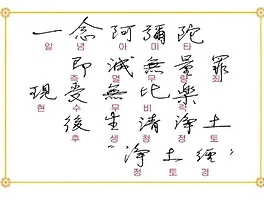 一念阿彌陀
일념아미타
即滅無量罪
즉멸무량죄
現受無比樂
현수무비락
後生淸淨土
후생청정토
"淨土經"
정토경